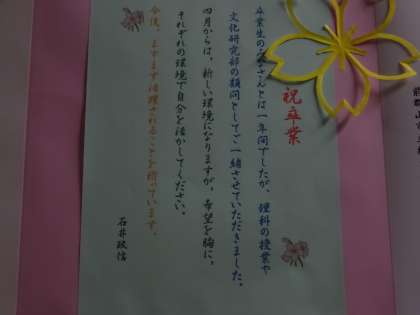 祝卒業
卒業生の皆さんとは一年間でしたが、理科の授業や
文化研究部の顧問としてご一緒させていただきました。
四月からは、新しい環境になりますが、希望を胸に、
それぞれの環境で自分を活かしてください。
今後、ますます活躍されることを祈っています。
石井政信